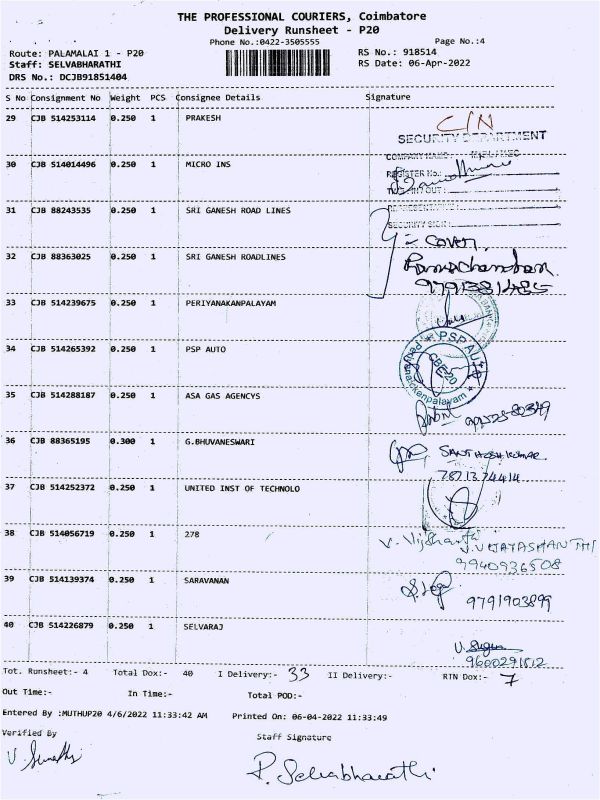 THE PROFESSIONAL COURIERS, Coimbatore
Delivery Runsheet - P20
Phone No.:0422-3505555
Page No.:4
Route: PALAMALAI 1 - P20
RS No.: 918514
Staff: SELVABHARATHI
RS Date: 06-Apr-2022
DRS No.: DCJB91851404
S No Consignment No Weight PCS Consignee Details Signature
29 CJB 514253114 0.250 1 PRAKESH
C/N
SECURITY DEPARTMENT
COMPANY NAME :
30 CJB 514014496 0.250 1 MICRO INS
REGISTER No.:
TIME IN/OUT :
31 CJB 88243535 0.250 1 SRI GANESH ROAD LINES
REPRESENTATIVE :
SECURITY SIGN :
= Cover
32 CJB 88363025 0.250 1 SRI GANESH ROADLINES
Ramachandran
9791381485
33 CJB 514239675 0.250 1 PERIYANAKANPALAYAM
34 CJB 514265392 0.250 1 PSP AUTO
PSP AUTO
CBE-20
Periyanaickenpalayam
35 CJB 514288187 0.250 1 ASA GAS AGENCYS
36 CJB 88365195 0.300 1 G.BHUVANESWARI
SANTHOSH KUMAR
7871374414
37 CJB 514252372 0.250 1 UNITED INST OF TECHNOLO
38 CJB 514056719 0.250 1 278
V. Vijshanthi V.VIJAYASHANTHI
9940936508
39 CJB 514139374 0.250 1 SARAVANAN
9791903899
40 CJB 514226879 0.250 1 SELVARAJ
9600291812
Tot. Runsheet:- 4 Total Dox:- 40 I Delivery:- 33 II Delivery:- RTN Dox:- 7
Out Time:- In Time:- Total POD:-
Entered By :MUTHUP20 4/6/2022 11:33:42 AM Printed On: 06-04-2022 11:33:49
Verified By Staff Signature
P. Selvabharathi